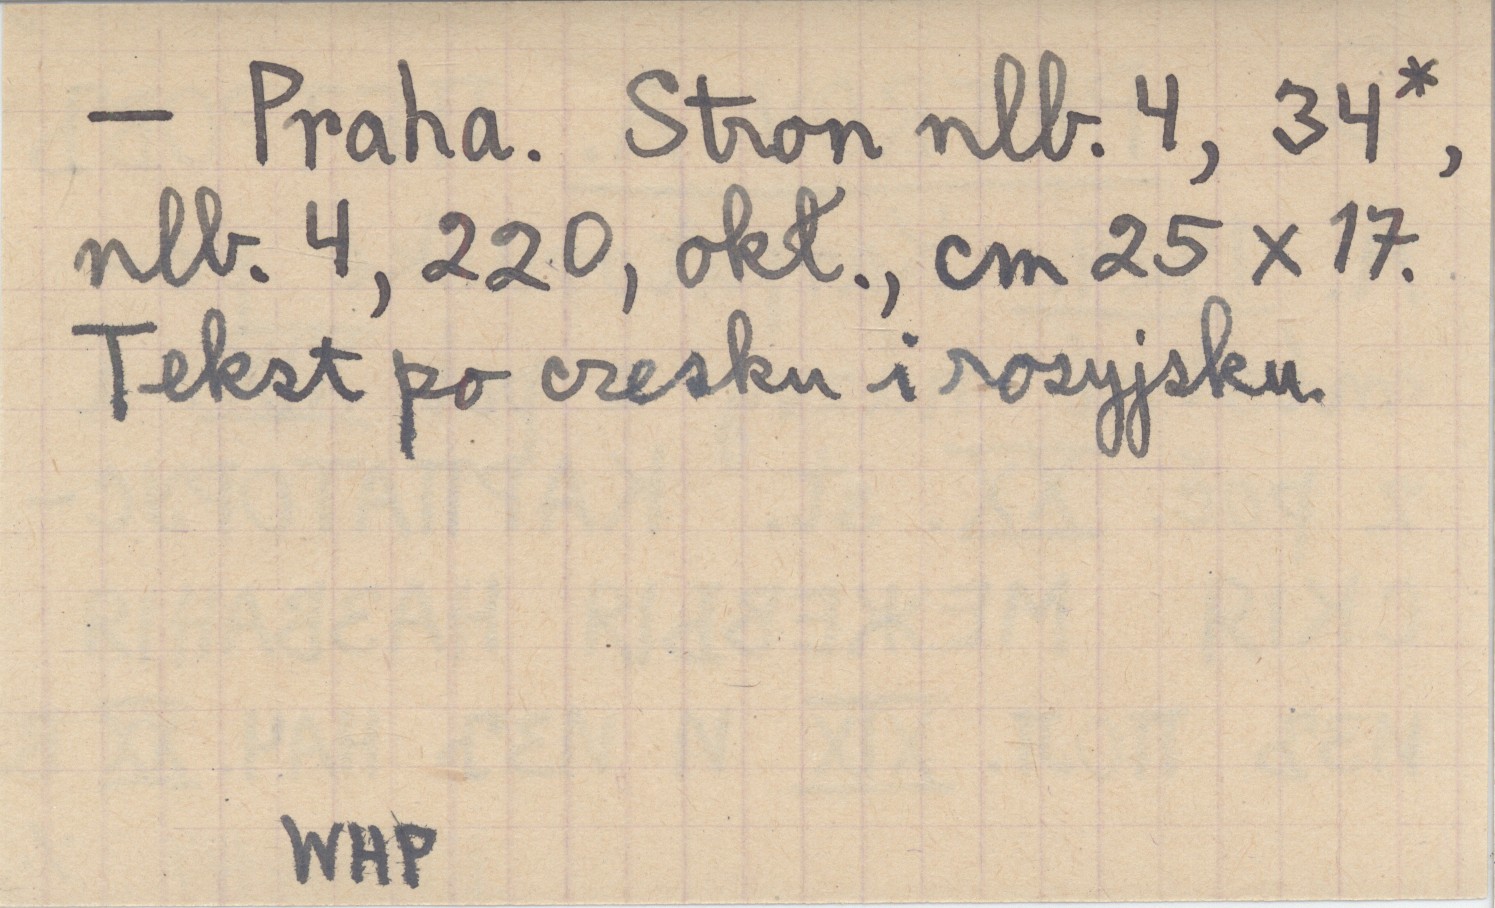 — Praha. Stron nlb. 4, 34*,
nlb. 4, 220, okł., cm 25 x 17.
Tekst po czesku i rosyjsku.
WHP